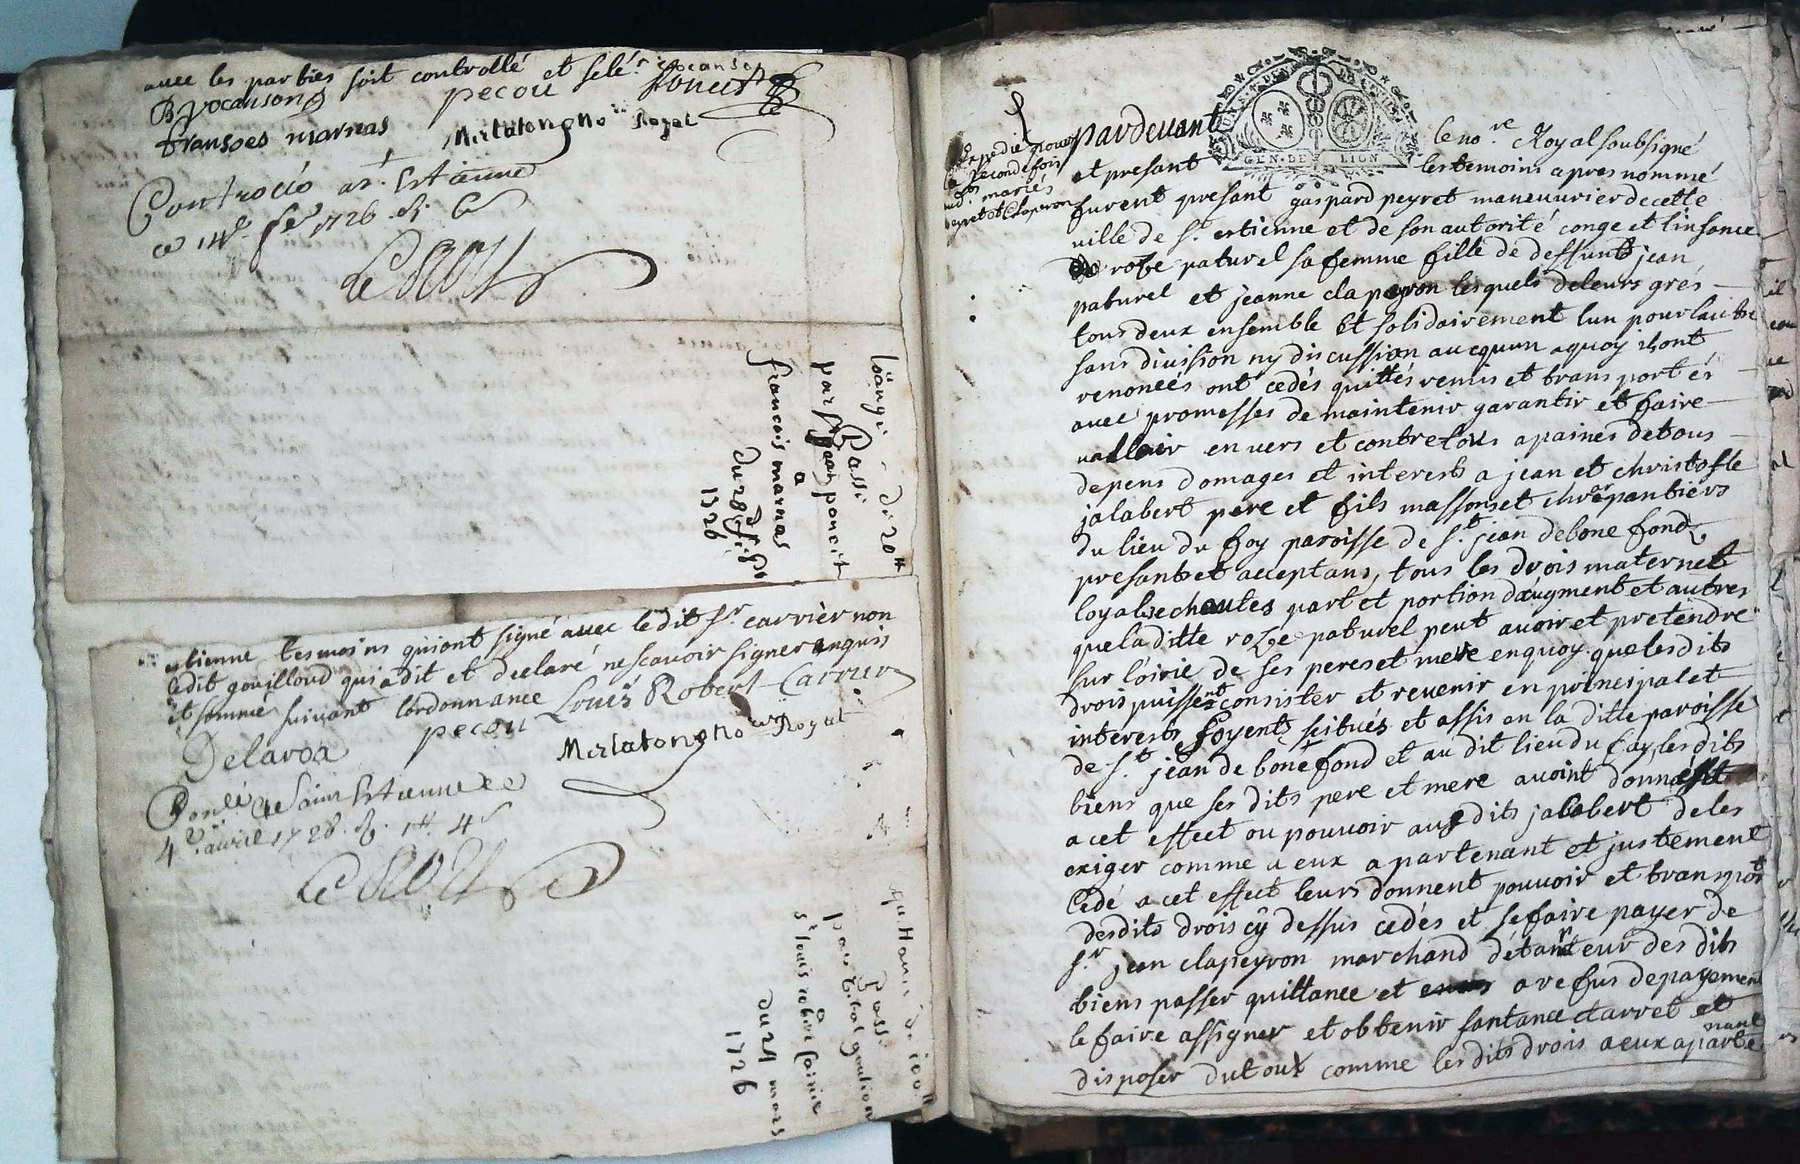 avec les parties soit controllé et selé
B vocanson pecou
fransoes marnas Matalon no Royal
Controllé a St Estienne
ce 14e fe 1726
quittance de 20tt
Passé
par Jean poncet
a
francois marnas
du
1726
estienne tesmoins qui ont signé avec ledit sr. carrier non
ledit gouilloud qui a dit et declaré ne scavoir signer enquis
et sommé suivant lordonnance Louis Robert Carrier
Delaroa pecou Matalon no Royal
de Saint Estienne le
4e avril 1726
quittance de 100tt
passé
par
a
sr louis robert Carrier
du 24 mars
1726
GEN. DE LION
Expedié pour
la seconde fois
mariés
peyret et Claperon
pardevant le nore. Royal soubsigné
et presant les temoins apres nommé
furent presant gaspard peyret maneuvrier de cette
ville de St. estienne et de son autorité congé et linsance
roze paturel sa femme fille de deffunts jean
paturel et jeanne clapeyron lesquels de leurs grés
tous deux ensemble Et solidairement lun pour lautre
sans division ny discussion aucquun aquoy ihont
renonceés ont cedés quittés remis et transportés
avec promesses de maintenir garantir et faire
valloir en vers et contre tous a paines de tous
depens domages et interests a jean et christofle
jalabert pere et fils massons et charpantiers
du lieu du fay paroisse de St. jean de bone fond
presants et acceptans, tous les drois maternels
loyalsechautes part et portion daugment et autres
que la ditte roze paturel peut avoir et pretendre
sur loirie de ses peres et mere en quoy que les dits
drois puissent consister et revenir en principal et
interests soyent scitués et assis en la ditte paroisse
de St. jean de bonefond et au dit lieu du fay, les dits
biens que ses dits pere et mere avoint donné
a cet effect ou pouvoir aux dits jalabert de les
exiger comme a eux apartenant et justement
Cedé a cet effect leurs donnent pouvoir et transport
desdits drois cy dessus cedés et se faire payer de
sr. jean clapeyron marchand detanteur des dits
biens passer quittance et a refus de payement
le faire assigner et obtenir santance et arret et
disposer du tout comme les dits drois a eux aparte
nant